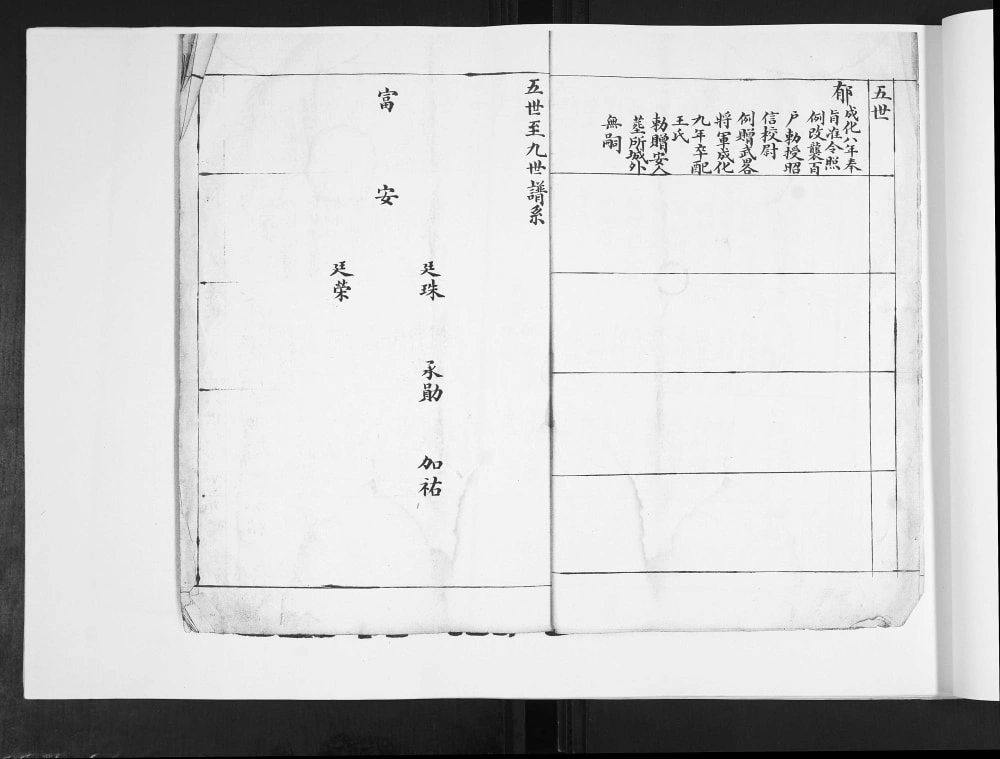 五世
郁
成化八年奉
旨准令照
例改襲百
户勅授昭
信校尉
例贈武畧
將軍成化
九年卒配
王氏
勅贈安人
塟所城外
無嗣
五世至九世譜系
廷珠
承勛
加祐
富
安
廷荣